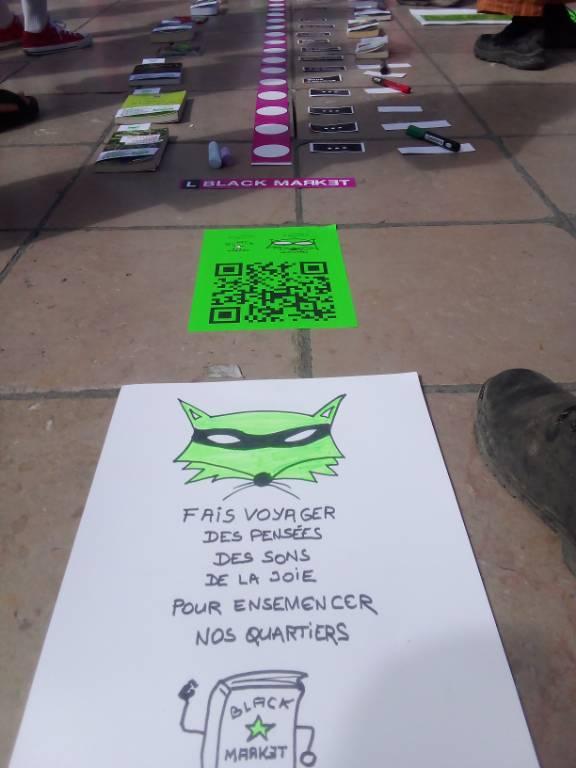 L BLACK MARKET
FAIS VOYAGER
DES PENSÉES
DES SONS
DE LA JOIE
POUR ENSEMENCER
NOS QUARTIERS
BLACK
MARKET